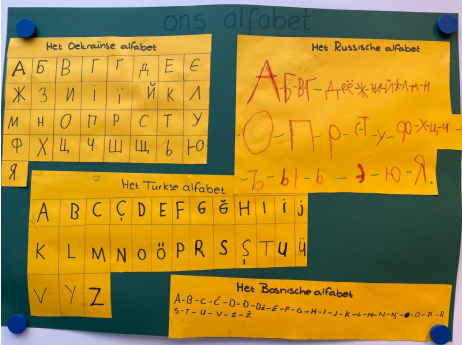 ons alfabet
Het Oekraïnse alfabet
А Б В Г Ґ Д Е Є
Ж З И І Ї Й К Л
М Н О П Р С Т У
Ф Х Ц Ч Ш Щ Ь Ю
Я
Het Russische alfabet
А Б-В-Г-Д-Е-Ё-Ж-З-И-Й-К-Л-М-Н
-О-П-Р-С-Т-У-Ф-Х-Ц-Ч
-Ъ-Ы-Ь-Э-Ю-Я.
Het Turkse alfabet
A B C Ç D E F G Ğ H I i j
K L M N O Ö P R S Ş T U Ü
V Y Z
Het Bosnische alfabet
A-B-C-Ć-D-Đ-Dž-E-F-G-H-I-J-K-L-M-N-Nj-O-P-R
S-T-U-V-Z-Ž